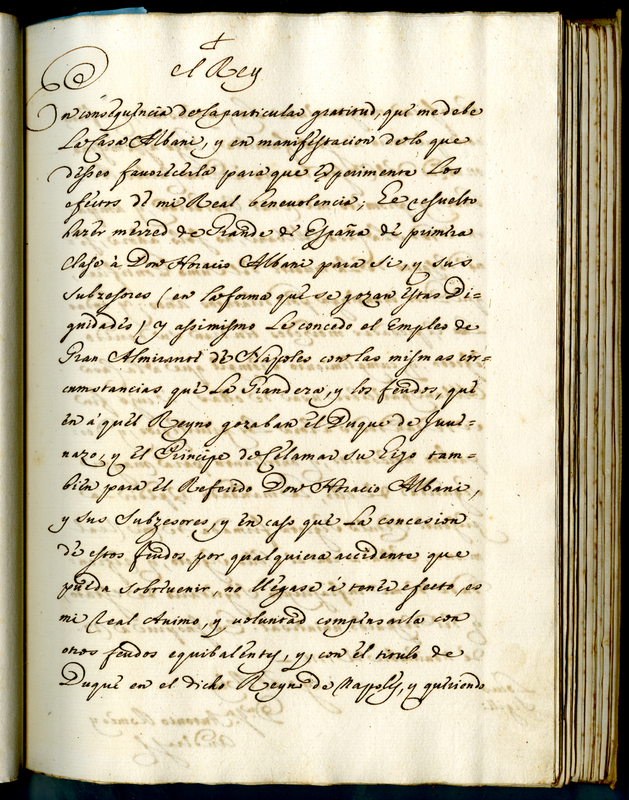 el Rey
En consequencia de la particular gratitud, que me debe
La Casa Albani, y en manifestacion de lo que
desseo favorecerla para que experimente Los
efectos de mi Real benevolencia; He resuelto
hazer merced de Grande de España de primera
Clase à Don Horacio Albani para si, y sus
Subzesores (en la forma que se gozan estas Di=
gnidades) y assimismo Le concedo el Empleo de
Gran Almirante de Napoles con las mismas cir=
cunstancias que La Grandeza, y los feudos, que
en à quel Reyno gozaban el Duque de Juue=
nazo, y el Principe de Celamar su Hijo tam=
bien para el Referido Don Horacio Albani,
y sus Subzesores, y en caso que La concesion
de estos feudos por qualquiera accidente que
pueda sobrevenir, no llegase à tener efecto, es
mi Real Animo, y voluntad compensarla con
otros feudos equibalentes, y, con el titulo de
Duque en el dicho Reyno de Napoles, y queriendo